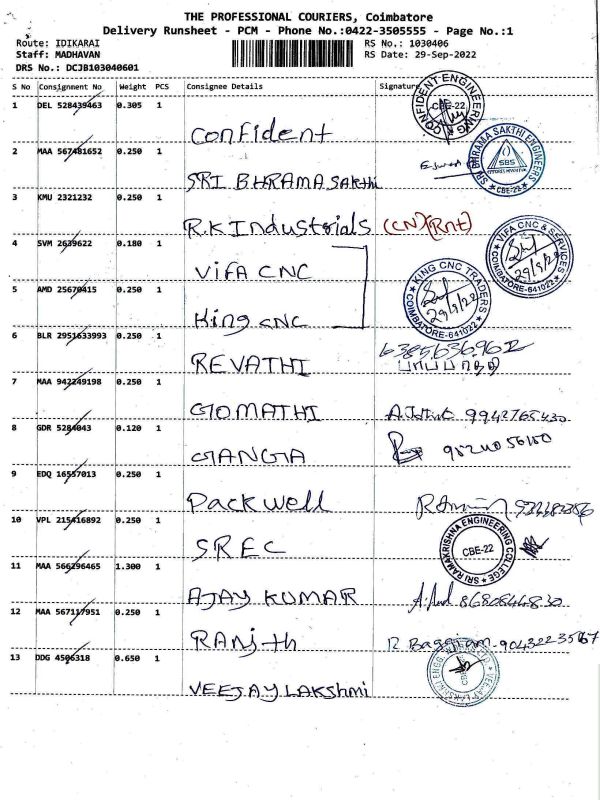 THE PROFESSIONAL COURIERS, Coimbatore
Delivery Runsheet - PCM - Phone No.:0422-3505555 - Page No.:1
Route: IDIKARAI RS No.: 1030406
Staff: MADHAVAN RS Date: 29-Sep-2022
DRS No.: DCJB103040601
S No Consignment No Weight PCS Consignee Details Signature
1 DEL 528439463 0.305 1 Confident
CONFIDENT ENGINEERING CBE-22
2 MAA 567481652 0.250 1 SRI BHRAMA SAKTHI
SRI BHRAMA SAKTHI ENGINEERS SBS CBE-22
3 KMU 2321232 0.250 1 R.K Industrials (CN)(Rnt)
4 SVM 2639622 0.180 1 VIFA CNC
VIFA CNC & SERVICES COIMBATORE-641022 29/9/22
5 AMD 25670415 0.250 1 King CNC
KING CNC TRADERS COIMBATORE-641022 29/9/22
6 BLR 2951633993 0.250 1 REVATHI
7 MAA 942249198 0.250 1 GOMATHI 9942765430
8 GDR 5284043 0.120 1 GANGA
9 EDQ 16557013 0.250 1 Packwell
10 VPL 215416892 0.250 1 SREC
SRI RAMAKRISHNA ENGINEERING COLLEGE CBE-22
11 MAA 566296465 1.300 1 AJAY KUMAR
12 MAA 567117951 0.250 1 RANjith
13 DDG 4506318 0.650 1 VEEJAY LAKSHMI